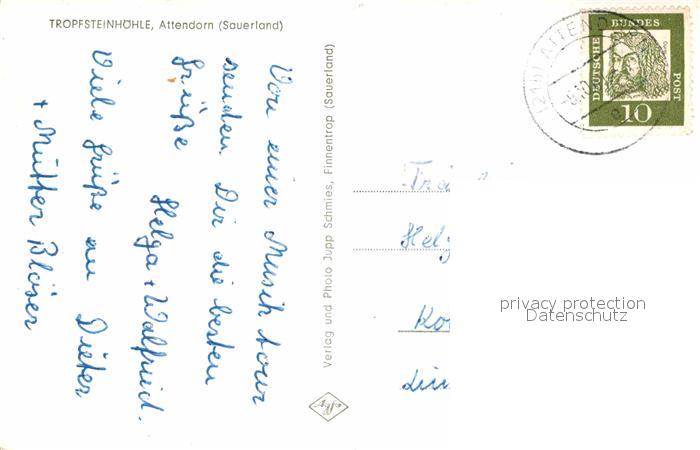 TROPFSTEINHÖHLE, Attendorn (Sauerland)
Von einer Musik tour
senden Dir die besten
Grüße
Helga + Walfried.
Viele Grüße an Dieter
+ Mutter Bläser
Verlag und Photo Jupp Schmies, Finnentrop (Sauerland)
DEUTSCHE
BUNDES
POST
10
ATTENDO
privacy protection
Datenschutz